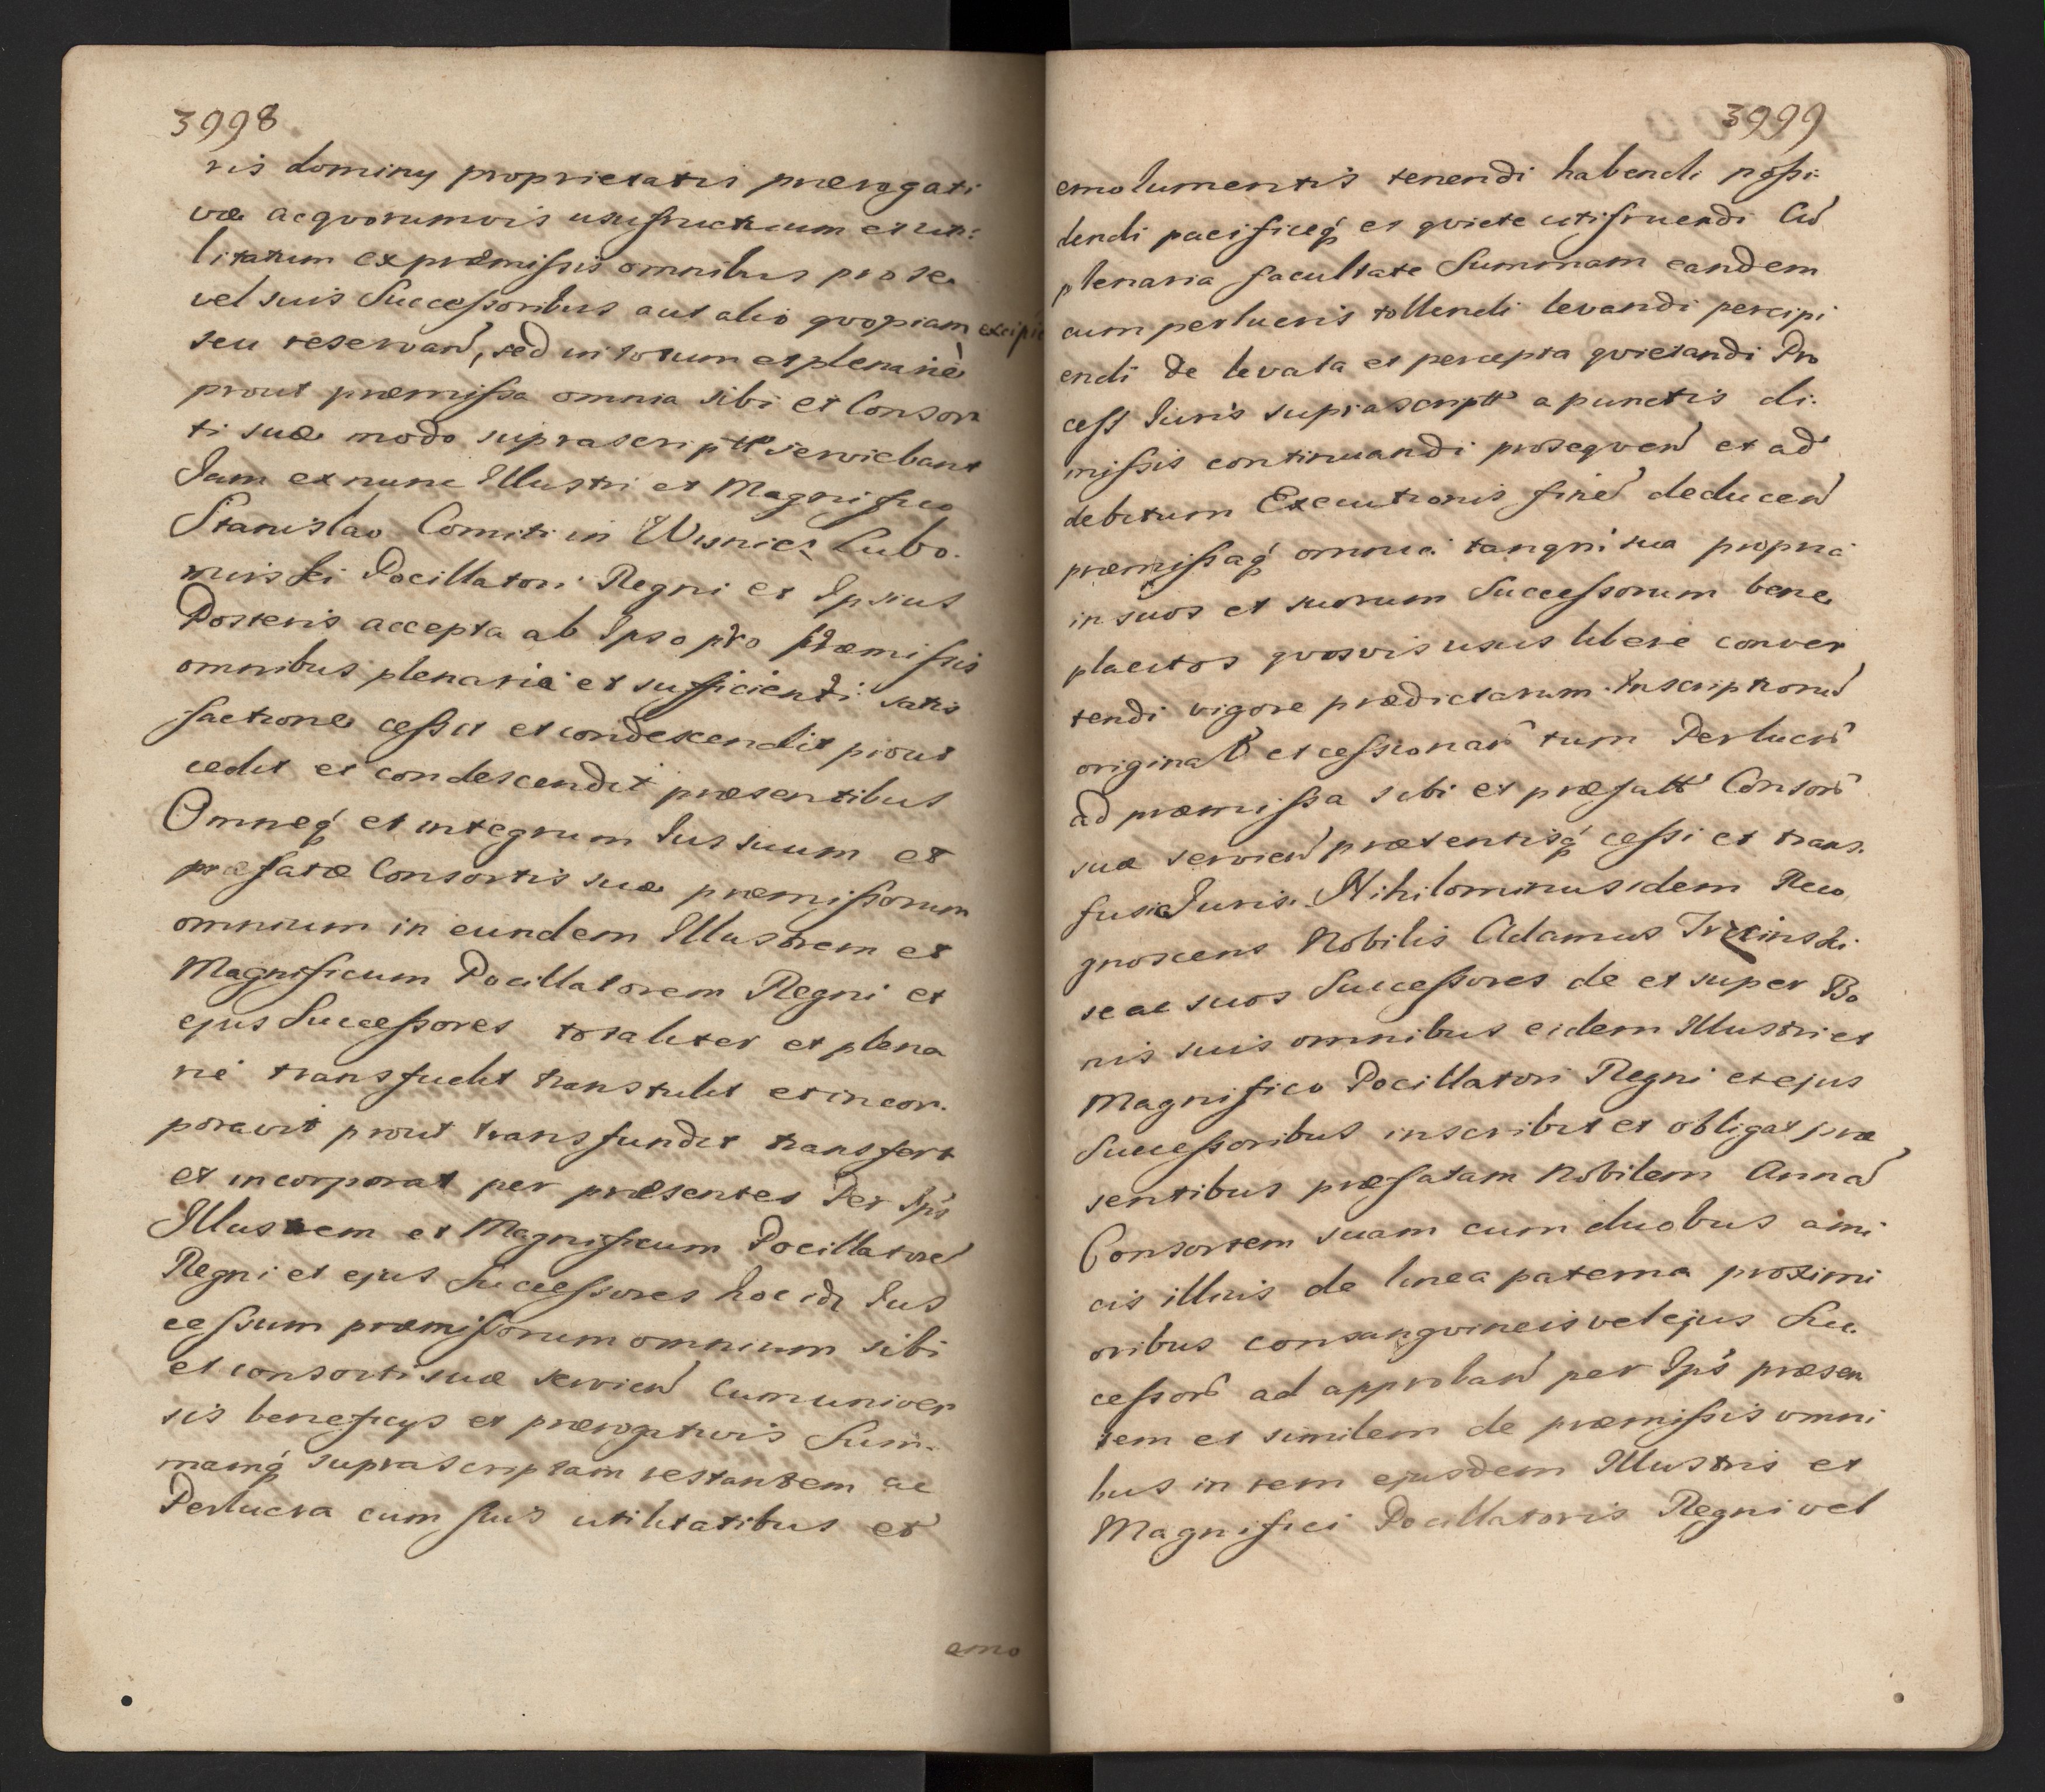 3998
ris dominy proprietatis prærogati
væ acqvorumvis ususfructuum et uti:
litatum ex præmißis omnibus pro se
vel suis Succeßoribus aut alio qvopiam excipi
seu reservan̄, sed in totum et plenarie
prout præmißa omnia sibi et Consor
ti suæ modo suprascriptt serviebant
Jam ex nunc Illustri et Magnifico
Stanislao Comiti in Wisnicz Lubo.
mirski Pocillatori Regni et Ipsius
Posteris accepta ab Ipso pro præmißis
omnibus plenaria et sufficienti satis
factione ceßit et condescendit prout
cedit et condescendit præsentibus
Omneq́ et integrum Jus suum et
præfatæ Consortis suæ præmißorum
omnium in eundem Illustrem et
Magnificum Pocillatorem Regni et
ejus Succeßores totaliter et plena
rie transfudit transtulit et incor.
poravit prout transfundit transfert
et incorporat per præsentes Per Ips̄
Illustrem et Magnificum Pocillatorē
Regni et ejus Succeßores hoc idē Jus
ceßum præmißorum omnium sibi
et consorti suæ servien̄ Cum univer
sis beneficys et prærogativis Sum.
mamq́ suprascriptam restantem ac
Perlucra cum suis utilitatibus et
emo
3999
emolumentis tenendi habendi poßi:
dendi pacificeq́ et qviete utifruendi Cū
plenaria facultate Summam eandem
cum perlucris tollendi levandi percipi
endi de levata et percepta qvietandi Pro
ceß Juris suprascriptt a punctis di.
mißis continuandi proseqven̄ et ad
debitum Executionis finē deducen̄
præmißaq́ omnia tanqn̄ sua propria
in suos et suorum Succeßorum bene
placitos qvosvis usus libere conver
tendi vigore prædictarum Inscriptionū
originall et ceßionar̄ tum Perlucr̄
ad præmißa sibi et præfatt Consor̄
suæ servien̄ prætentisq́ ceßi et trans.
fusi Juris. Nihilominus idem Reco
gnoscens Nobilis Adamus Trzcinski
se ac suos Succeßores de et super Bo
nis suis omnibus eidem Illustri et
Magnifico Pocillatori Regni et ejus
Succeßoribus inscribit et obligat præ
sentibus præfatam Nobilem Annā
Consortem suam cum duobus ami
cis illius de linea paterna proximi
oribus consangvineis vel ejus Suc.
ceßor̄ ad approban̄ per Ips̄ præsen
tem et similem de præmißis omni
bus in rem ejusdem Illustris et
Magnifici Pocillatoris Regni vel